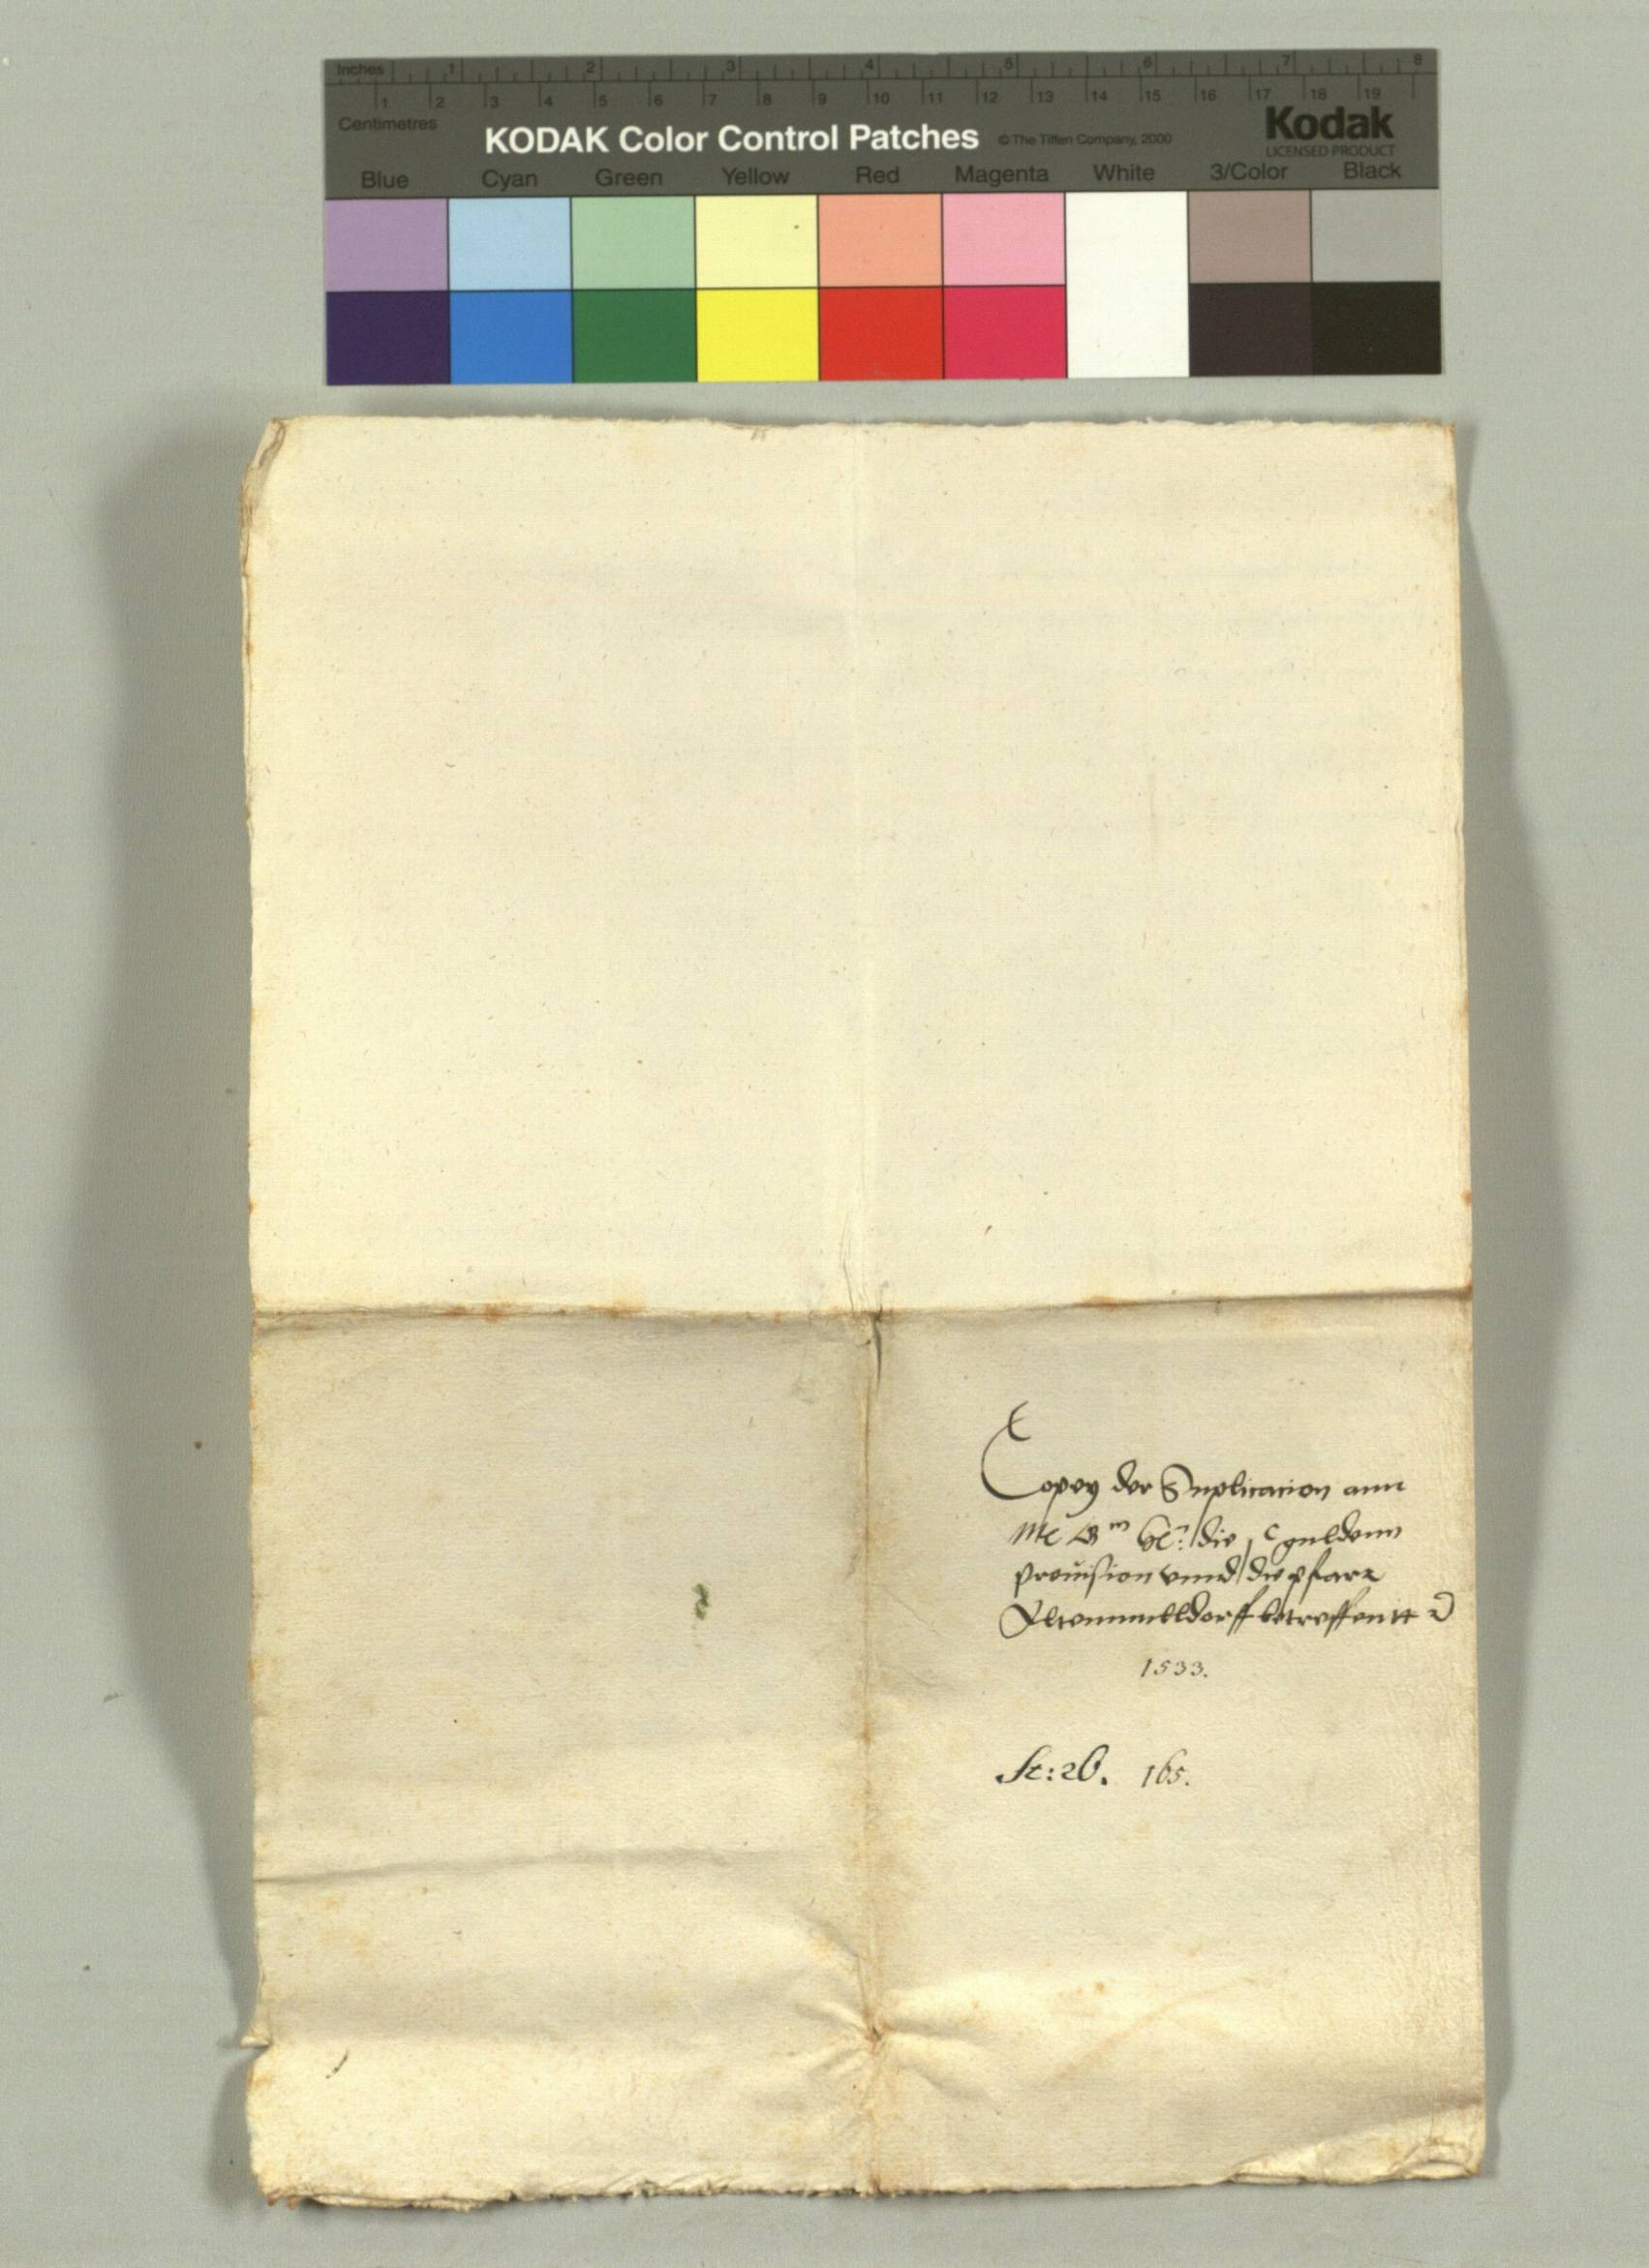 Inches 1 2 3 4 5 6 7 8
1 2 3 4 5 6 7 8 9 10 11 12 13 14 15 16 17 18 19
Centimetres
KODAK Color Control Patches © The Tiffen Company, 2000 Kodak
LICENSED PRODUCT
Blue Cyan Green Yellow Red Magenta White 3/Color Black
Copey der Suplicacion ann
die guldenn
prouision vnnd die pfarr
Altenmulldorff betreffentt
1533.
St: 26. 165.